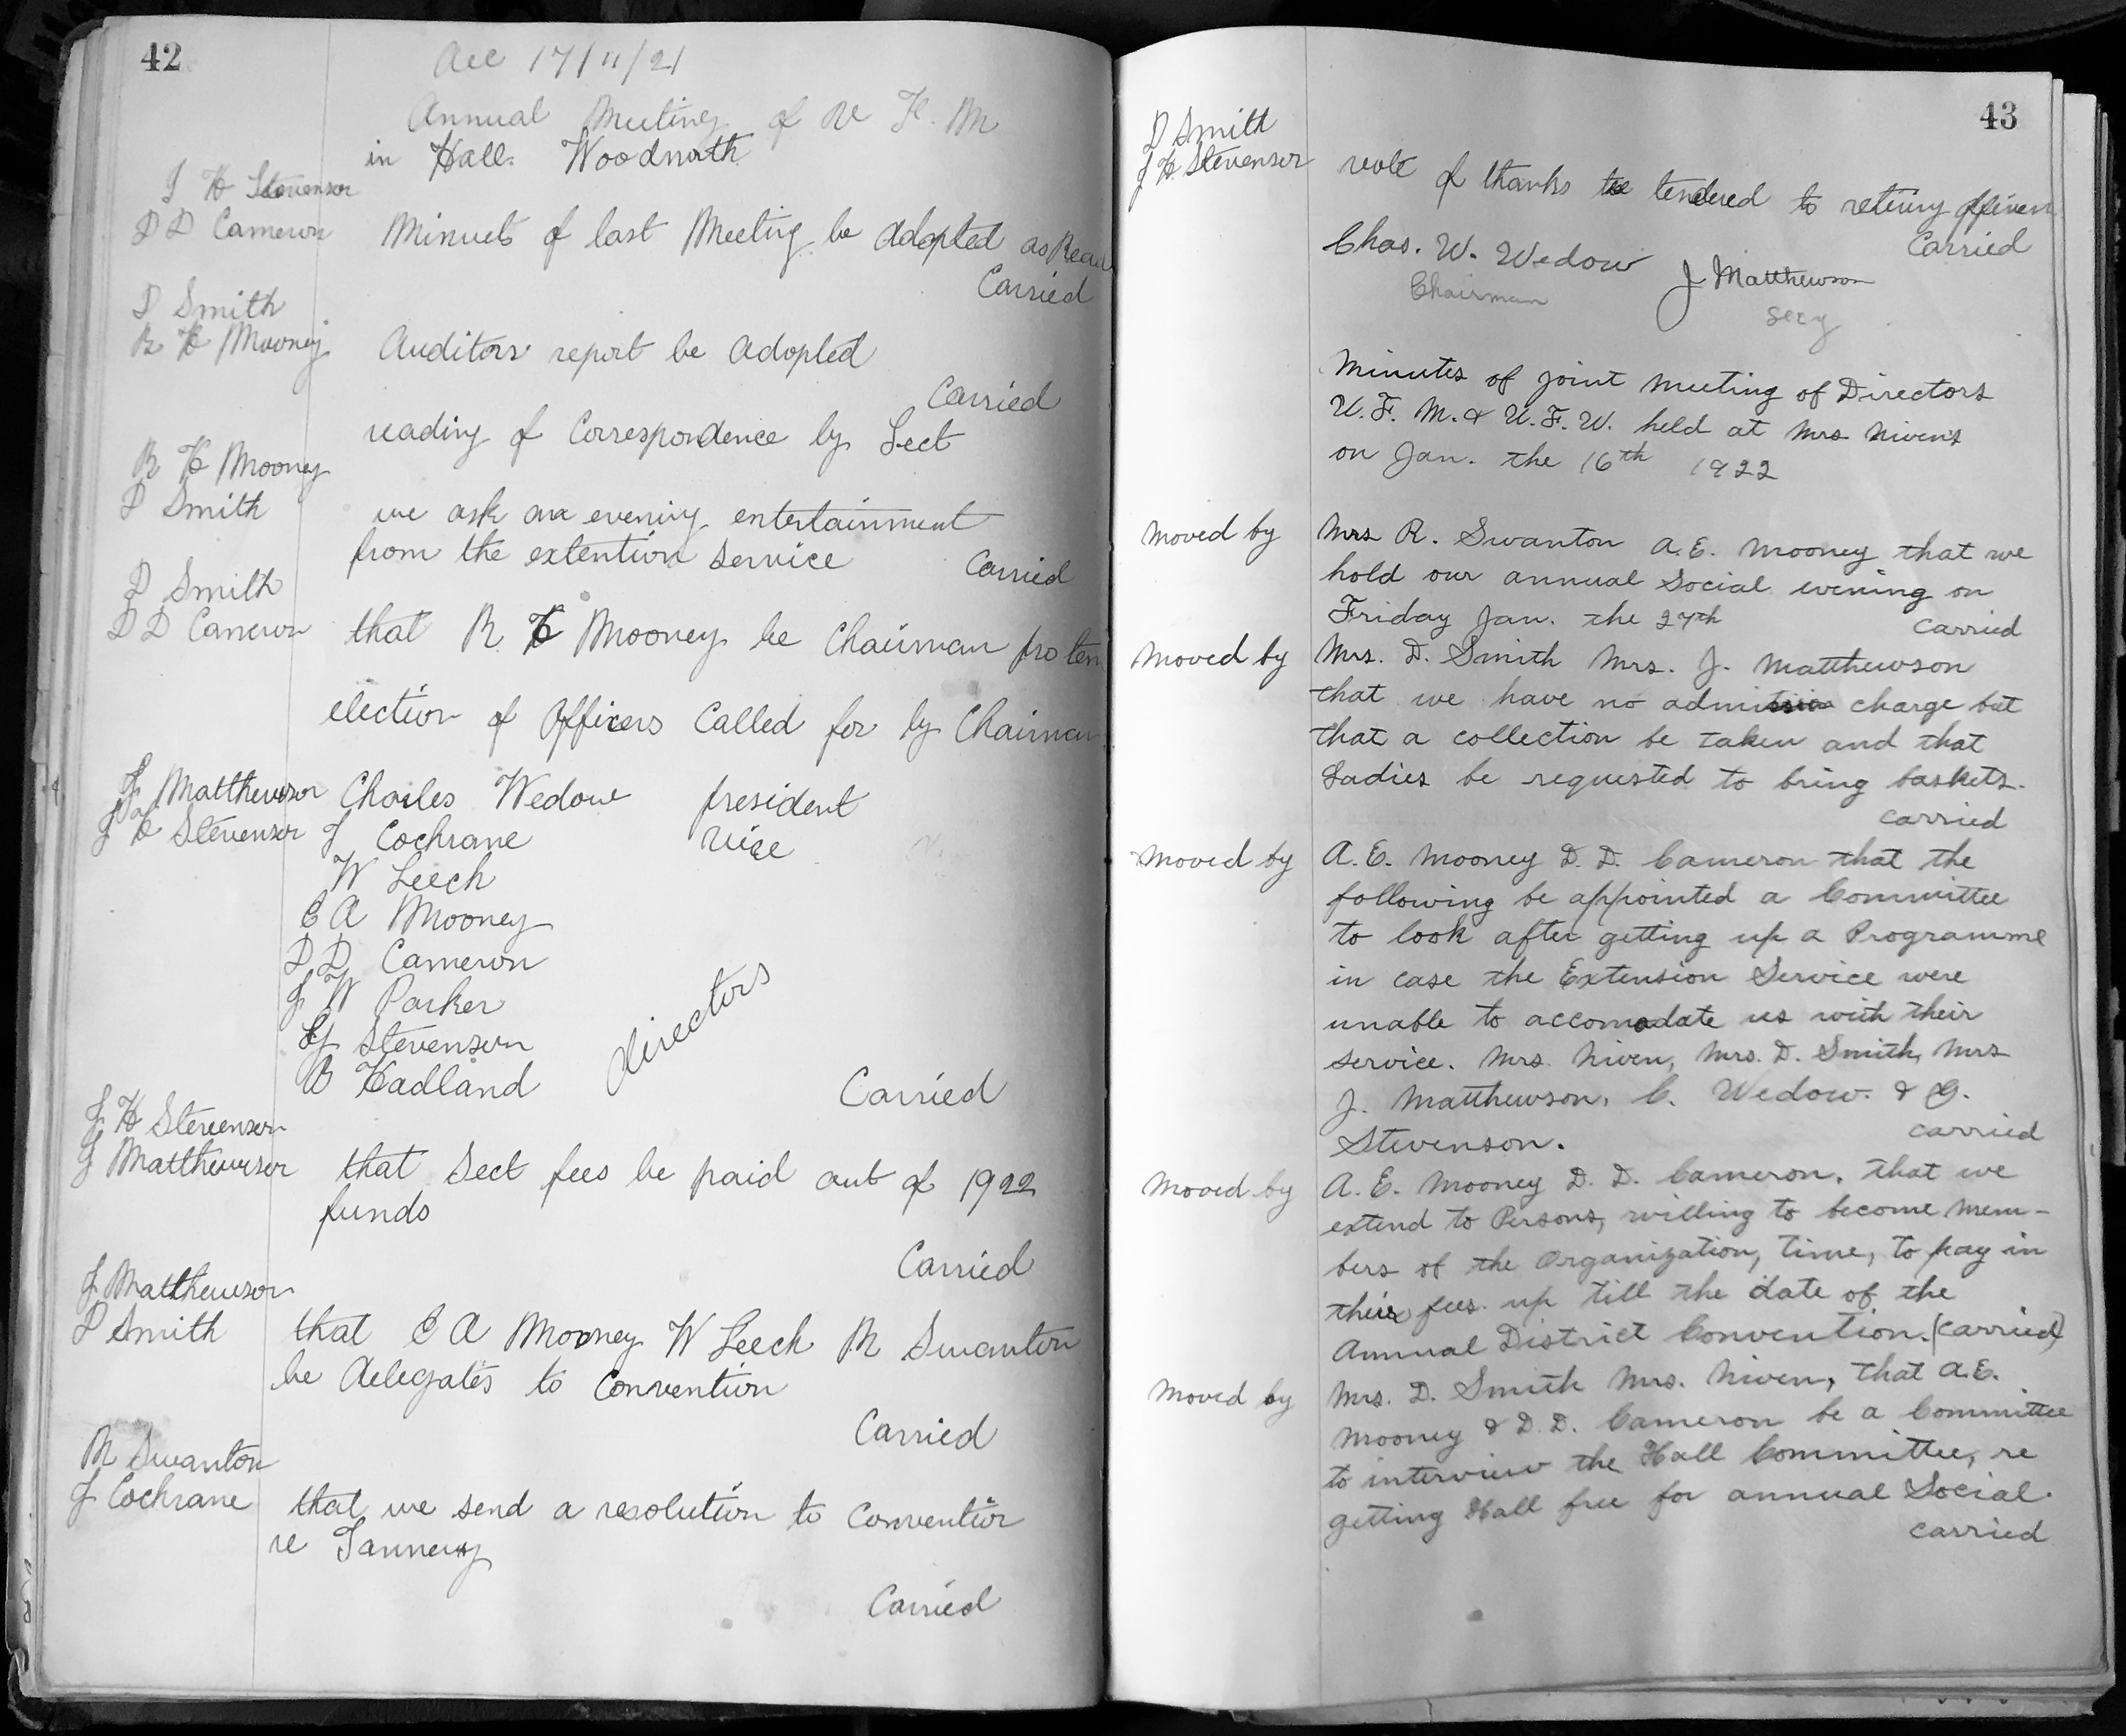 42
Dec 17/11/21
Annual Meeting of U F. M
in Hall. Woodnorth
J H Stevenson
D D Cameron Minuets of last Meeting be adopted as Read
Carried
D Smith
R H Mooney Auditors report be adopted
Carried
reading of Correspondence by Sect
R H Mooney
D Smith we ask an evening entertainment
from the extention service Carried
D Smith
D D Cameron that R H Mooney be Chairman pro tem
election of Officers Called for by Chairman
J Matthewson Charles Wedow president
J H Stevenson J Cochrane vice
W Leech
E A Mooney
D D Cameron
J W Parker
G Stevenson
B Hadland
directors
Carried
J H Stevenson
J Matthewson that Sect fees be paid out of 1922
funds
Carried
J Matthewson
D Smith that E A Mooney W Leech R Swanton
be delegates to Convention
Carried
R Swanton
J Cochrane that we send a resolution to Convention
re Tannery
Carried
43
D Smith
J H Stevenson vote of thanks be tendered to retiring officers
Carried
Chas. W. Wedow J Matthewson
Chairman secy
Minutes of joint meeting of Directors
U. F. M. & U. F. W. held at Mrs Niven's
on Jan. the 16th 1922
Moved by Mrs R. Swanton A.E. Mooney that we
hold our annual Social evening on
Friday Jan. the 27th carried
Moved by Mrs. D. Smith Mrs. J. Matthewson
that we have no admission charge but
that a collection be taken and that
Ladies be requested to bring baskets.
carried
Moved by A. E. Mooney D. D. Cameron that the
following be appointed a Committee
to look after getting up a Programme
in case the Extension Service were
unable to accomodate us with their
service. Mrs. Niven, Mrs. D. Smith, Mrs
J. Matthewson, C. Wedow. & G.
Stevenson. carried
Moved by A. E. Mooney D. D. Cameron, that we
extend to Persons, willing to become mem-
bers of the Organization, time, to pay in
their fees up till the date of the
Annual District Convention. (carried)
Moved by Mrs. D. Smith Mrs. Niven, that A.E.
Mooney & D. D. Cameron be a Committee
to interview the Hall Committee, re
getting Hall free for annual Social.
carried